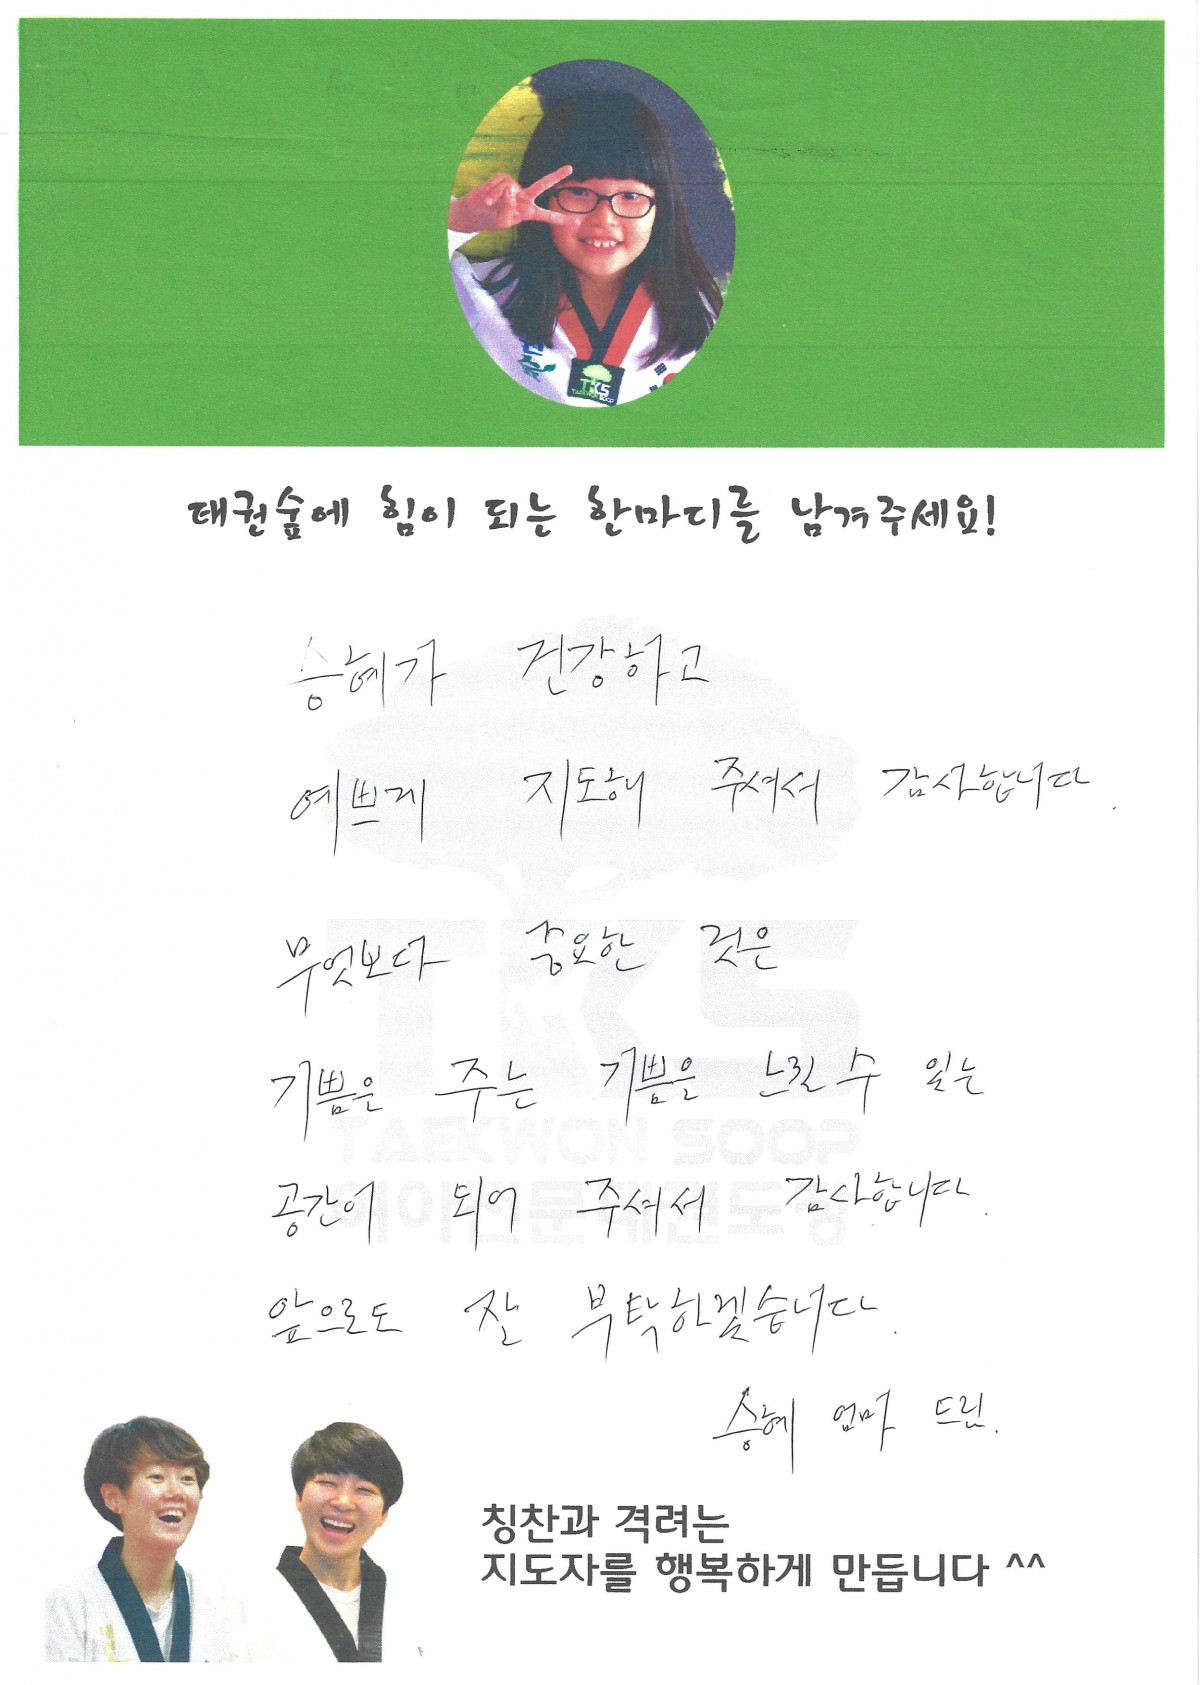 TKS
TAEKWON SOOP
태권숲에 힘이 되는 한마디를 남겨주세요!
승혜가 건강하고
예쁘게 지도해 주셔서 감사합니다.
무엇보다 중요한 것은
기쁨은 주는 기쁨을 느낄 수 있는
공간이 되어 주셔서 감사합니다.
앞으로도 잘 부탁하겠습니다.
승혜 엄마 드린.
TKS
TAEKWON SOOP
칭찬과 격려는
지도자를 행복하게 만듭니다 ^^